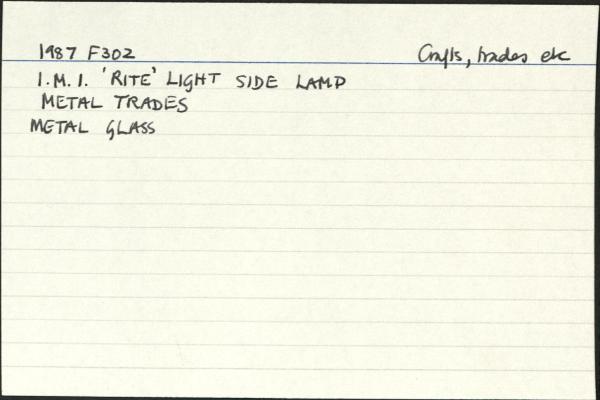 1987 F302 Crafts, trades etc
I.M.I. 'RITE' LIGHT SIDE LAMP
METAL TRADES
METAL GLASS